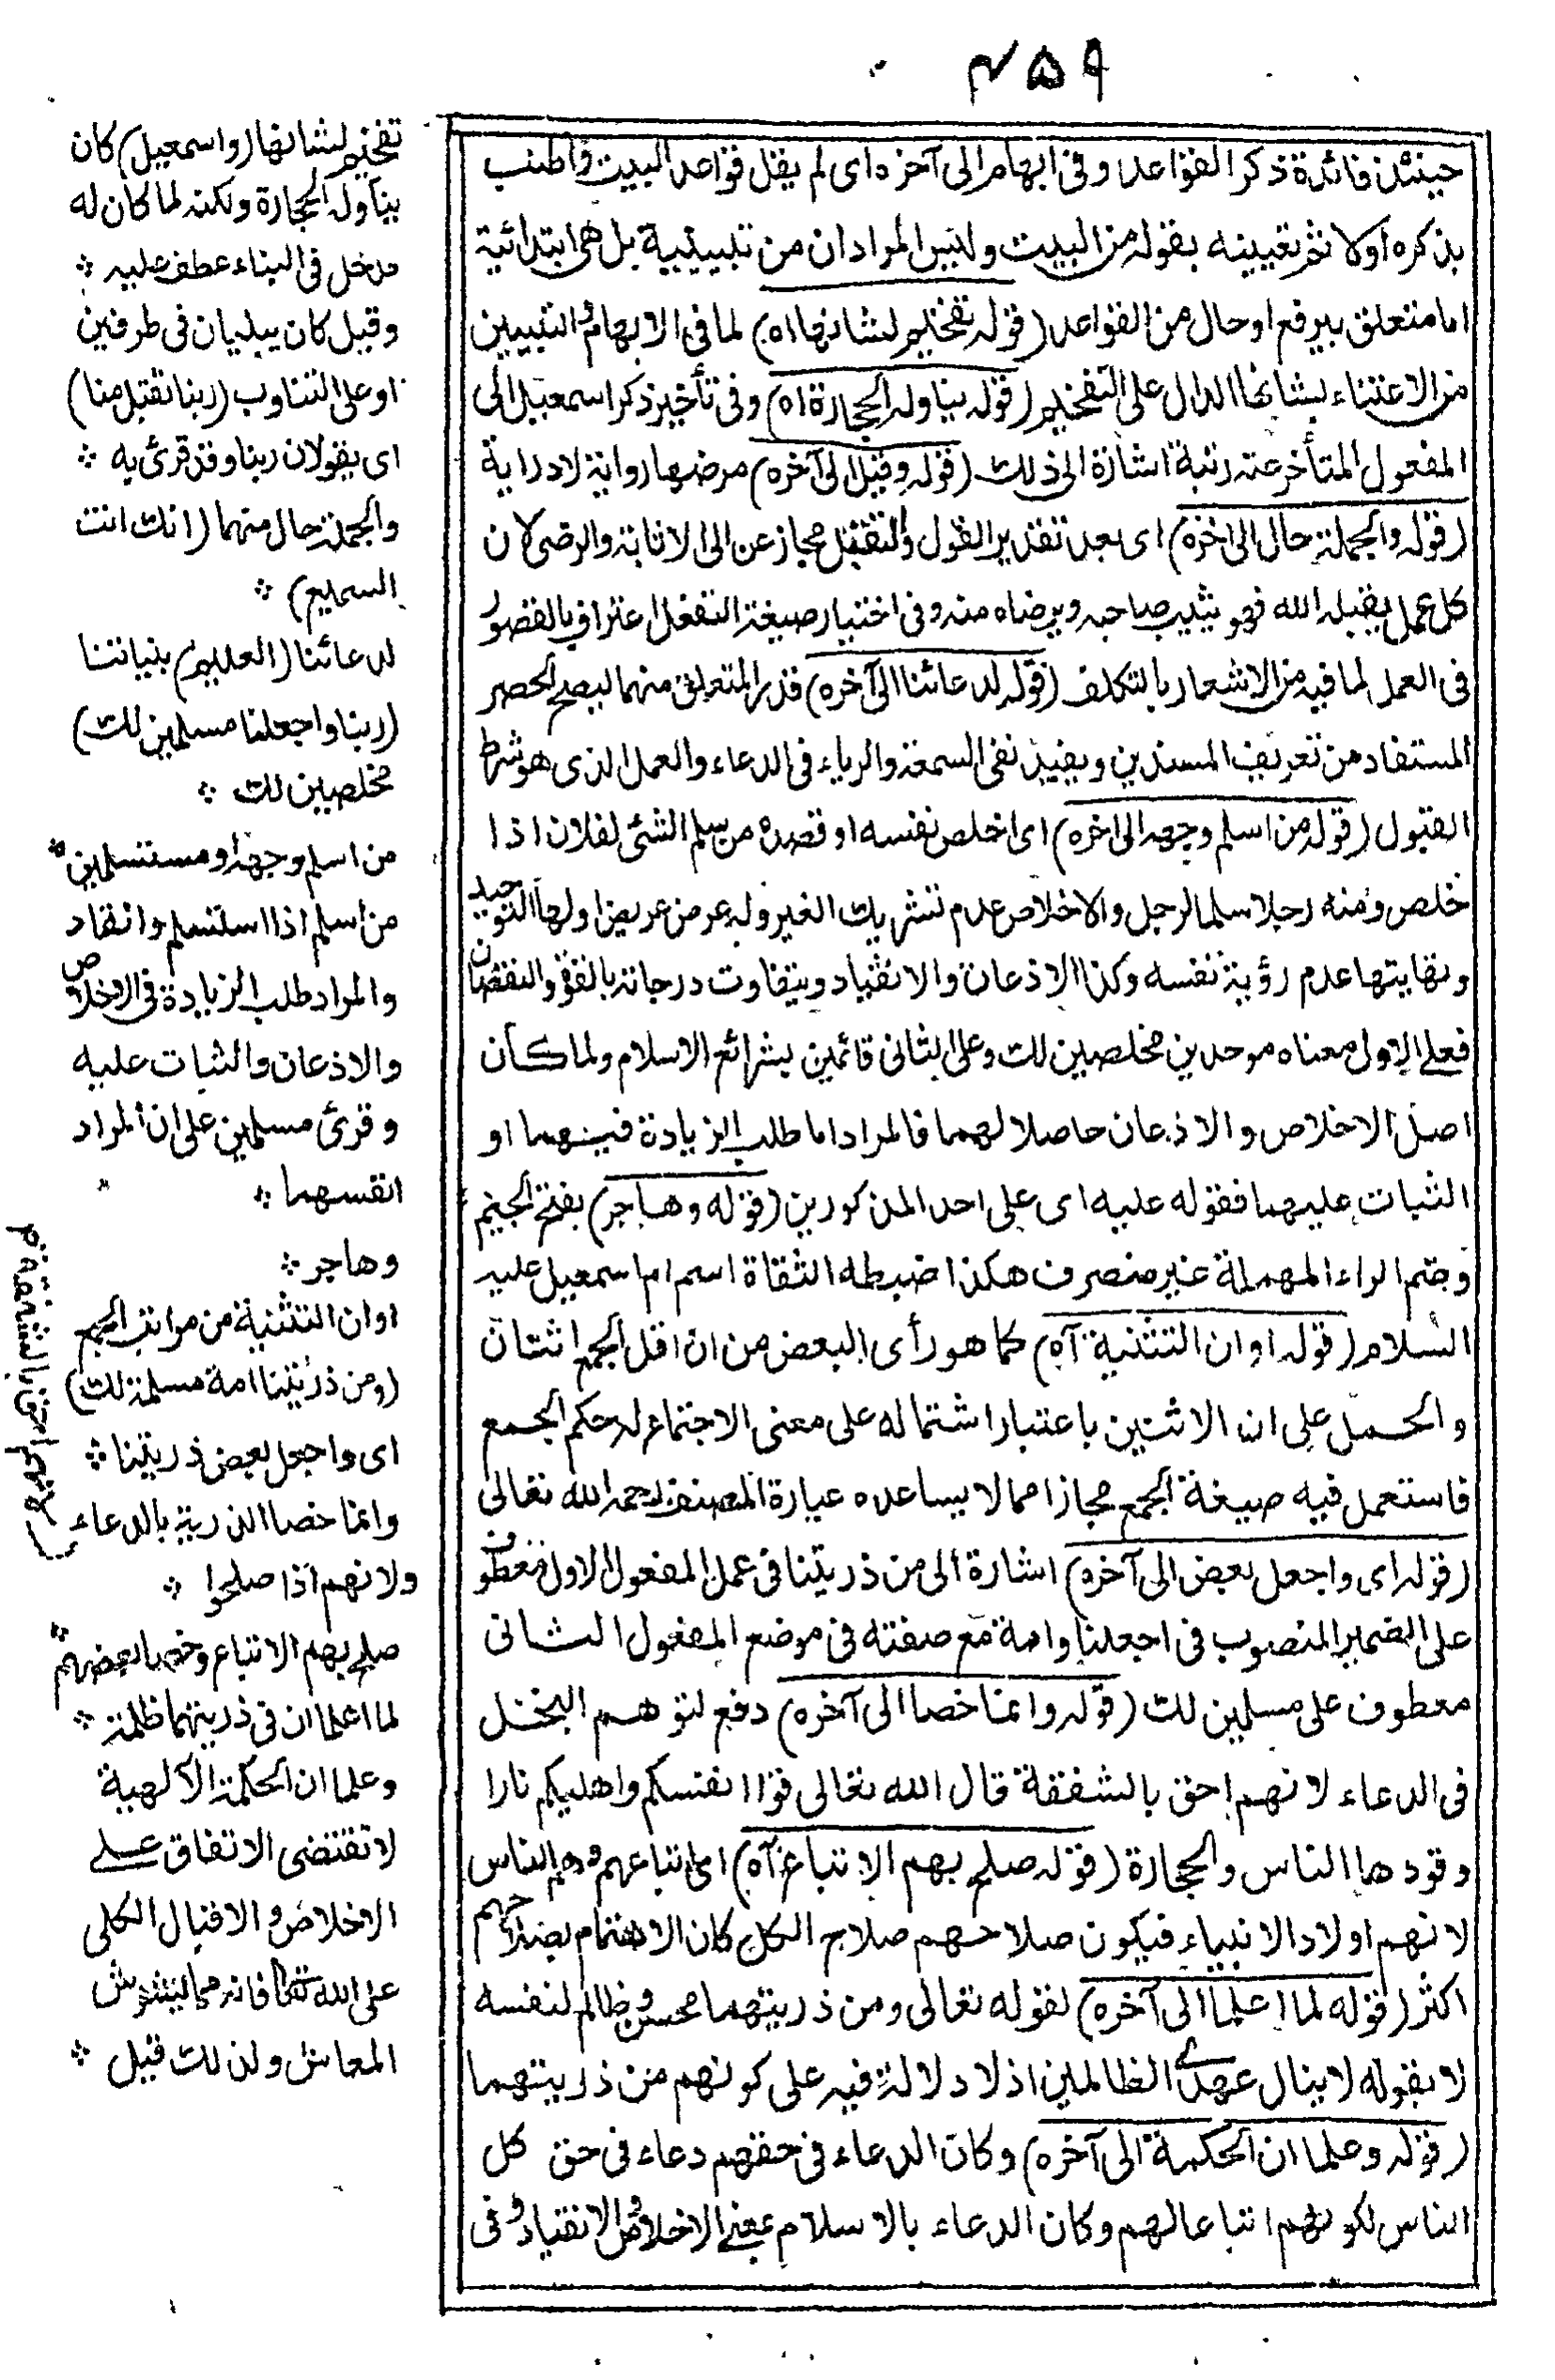 ٤٥٩
حينئذ فائدة ذكر القواعد وفى ابهام الى آخره اى لم يقل قواعد البيت واطنب
بذكره اولا ثم تعيينه بقوله من البيت وليس المراد ان من تبيينية بل هى ابتدائية
اما متعلق بيرفع او حال من القواعد (قوله تفخيم لشانها اه) لما فى الابهام والتبيين
من الاعتناء بشانها الدال على التفخيم (قوله يناوله الحجارة اه) وفى تأخير ذكر اسمعيل الى
المفعول المتأخر عنه رتبة اشارة الى ذلك (قوله وقيل الى آخره) مرضها رواية لا دراية
(قوله والجملة حال الى اخره) اى بعد تقدير القول والتقبل مجاز عن الاثابة والرضى لان
كل عمل يقبله الله فهو يثيب صاحبه ويرضاه منه وفى اختيار صيغة التفعل اعتراف بالقصور
فى العمل لما فيه من الاشعار بالتكلف (قوله لدعائنا الى آخره) قدر المتعلق منهما ليصح الحصر
المستفاد من تعريف المسندين ويفيد نفى السمعة والرياء فى الدعاء والعمل الذى هو شرط
القبول (قوله من اسلم وجهه الى اخره) اى اخلص نفسه او قصده من سلم الشئ لفلان اذا
خلص ومنه رجلا سلما لرجل والاخلاص عدم تشريك الغير وله عرض عريض اولها التوحيد
ونهايتها عدم رؤية نفسه وكذا الاذعان والانقياد ويتفاوت درجاته بالقوة والنقصان
فعلى الاول معناه موحدين مخلصين لك وعلى الثانى قائمين بشرائع الاسلام ولما كان
اصل الاخلاص والاذعان حاصلا لهما فالمراد اما طلب الزيادة فيهما او
الثبات عليهما فقوله عليه اى على احد المذكورين (قوله وهاجر) بفتح الجيم
وضم الراء المهملة غير منصرف هكذا ضبطه الثقاة اسم ام اسمعيل عليه
السلام (قوله او ان التثنية آه) كما هو رأى البعض من ان اقل الجمع اثنان
والحمل على ان الاثنين باعتبار اشتماله على معنى الاجتماع له حكم الجمع
فاستعمل فيه صيغة الجمع مجازا مما لا يساعده عبارة المصنف رحمه الله تعالى
(قوله اى واجعل بعض الى آخره) اشارة الى من ذريتنا فى محل المفعول الاول معطوف
على الضمير المنصوب فى اجعلنا وامة مع صفته فى موضع المفعول الثانى
معطوف على مسلمين لك (قوله وانما خصا الى آخره) دفع لتوهم البخل
فى الدعاء لانهم احق بالشفقة قال الله تعالى قوا انفسكم واهليكم نارا
وقودها الناس والحجارة (قوله صلح بهم الاتباع آه) اى اتباعهم وهم الناس
لانهم اولاد الانبياء فيكون صلاحهم صلاح الكل كان الاهتمام بصلاحهم
اكثر (قوله لما اعلما الى آخره) لقوله تعالى ومن ذريتهما محسن وظالم لنفسه
لا بقوله لا ينال عهدى الظالمين اذ لا دلالة فيه على كونهم من ذريتهما
(قوله وعلما ان الحكمة الى آخره) وكان الدعاء فى حقهم دعاء فى حق كل
الناس لكونهم اتباعا لهم وكان الدعاء بالاسلام بمعنى الاخلاص والانقياد وفى
تفخيم لشانها (واسمعيل) كان
يناوله الحجارة ولكنه لما كان له
مدخل فى البناء عطف عليه
وقيل كان يبنيان فى طرفين
او على التناوب (ربنا تقبل منا)
اى يقولان ربنا وقد قرئ به
والجملة حال منهما (انك انت
السميع)
لدعائنا (العليم) بنياتنا
(ربنا واجعلنا مسلمين لك)
مخلصين لك
من اسلم وجهه او مستسلمين
من اسلم اذا استسلم وانقاد
والمراد طلب الزيادة فى الاخلاص
والاذعان والثبات عليه
وقرئ مسلمين على ان المراد
انفسهما
وهاجر
او ان التثنية من مراتب الجمع
(ومن ذريتنا امة مسلمة لك)
اى واجعل بعض ذريتنا
وانما خصا الذرية بالدعاء
لانهم احق بالشفقة م
ولانهم اذا صلحوا
صلح بهم الاتباع وخصا بعضهم
لما اعلما ان فى ذريتهما ظلمة
وعلما ان الحكمة الالهية
لا تقتضى الاتفاق على
الاخلاص والاقبال الكلى
على الله تعالى فانه مما يشوش
المعاش ولذلك قيل